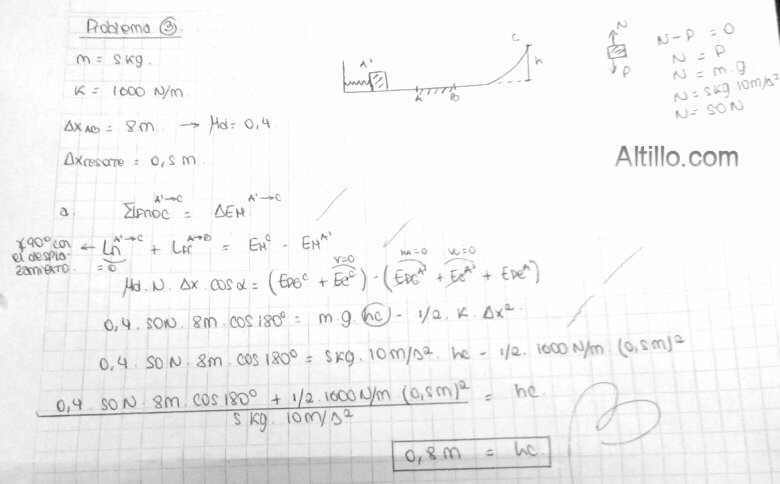 Problema ③
m = 5kg.
K = 1000 N/m
Δx AB = 8m → μd = 0,4
Δx resorte = 0,5 m
A'
A
B
C
h
N
P
N - P = 0
N = P
N = m.g
N = 5kg 10m/s²
N = 50N
Altillo.com
a. ΣLFNOC A'→C = ΔEM A'→C
γ 90° con el despla-zamiento. ← LN A'→C + LFR A→B = EM C - EM A'
= 0
V=0
hA=0
Vc=0
μd. N. Δx. cos α = (EPG C + EC C) - (EPG A' + EC A' + EPE A')
0,4. 50N. 8m. cos 180° = m g. hc - 1/2. K. Δx².
0,4. 50N. 8m. cos 180° = 5kg. 10m/s². hc - 1/2. 1000 N/m (0,5m)²
0,4. 50N. 8m. cos 180° + 1/2. 1000 N/m (0,5m)² = hc.
5 kg. 10m/s²
0,8m = hc
B